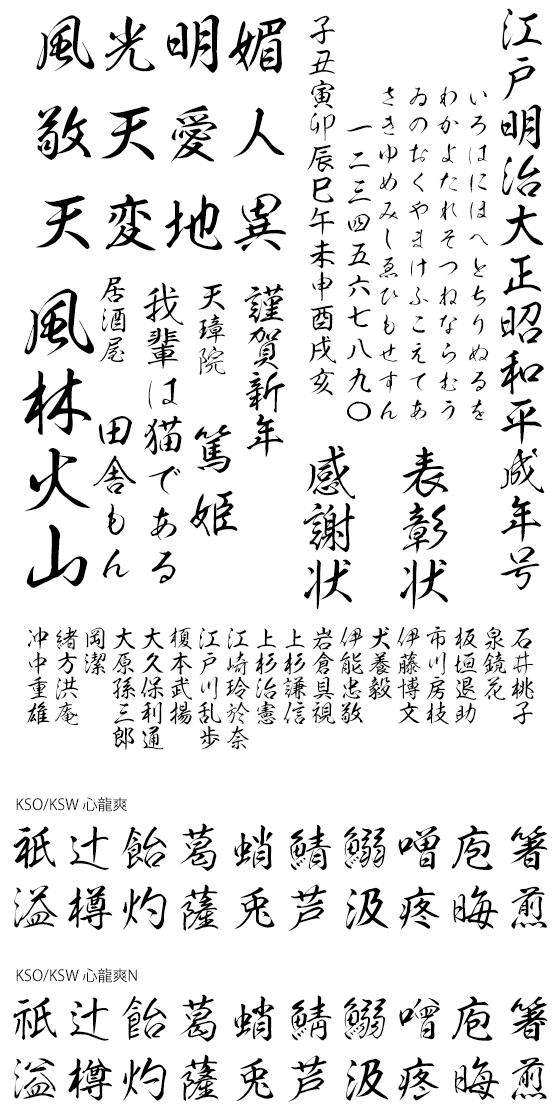 江戸明治大正昭和平成年号
いろはにほへとちりぬるを
わかよたれそつねならむう
ゐのおくやまけふこえてあ
さきゆめみしゑひもせすん
一二三四五六七八九〇
子丑寅卯辰巳午未申酉戌亥
表彰状
感謝状
風光明媚
敬天愛人
天変地異
謹賀新年
天璋院 篤姫
我輩は猫である
居酒屋 田舎もん
風林火山
石井桃子
泉鏡花
板垣退助
市川房枝
伊藤博文
犬養毅
伊能忠敬
岩倉具視
上杉謙信
上杉治憲
江崎玲於奈
江戸川乱歩
榎本武揚
大久保利通
大原孫三郎
岡潔
緒方洪庵
冲中重雄
KSO/KSW 心龍爽
祇辻飴葛蛸鯖鰯噌庖箸
溢樽灼薩兎芦汲疼晦煎
KSO/KSW 心龍爽N
祇辻飴葛蛸鯖鰯噌庖箸
溢樽灼薩兎芦汲疼晦煎